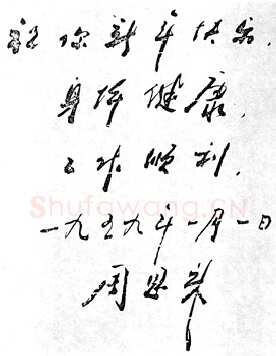 祝你新年快乐.
身体健康,
工作顺利.
Shufawang.CN
一九五九年一月一日
周恩来